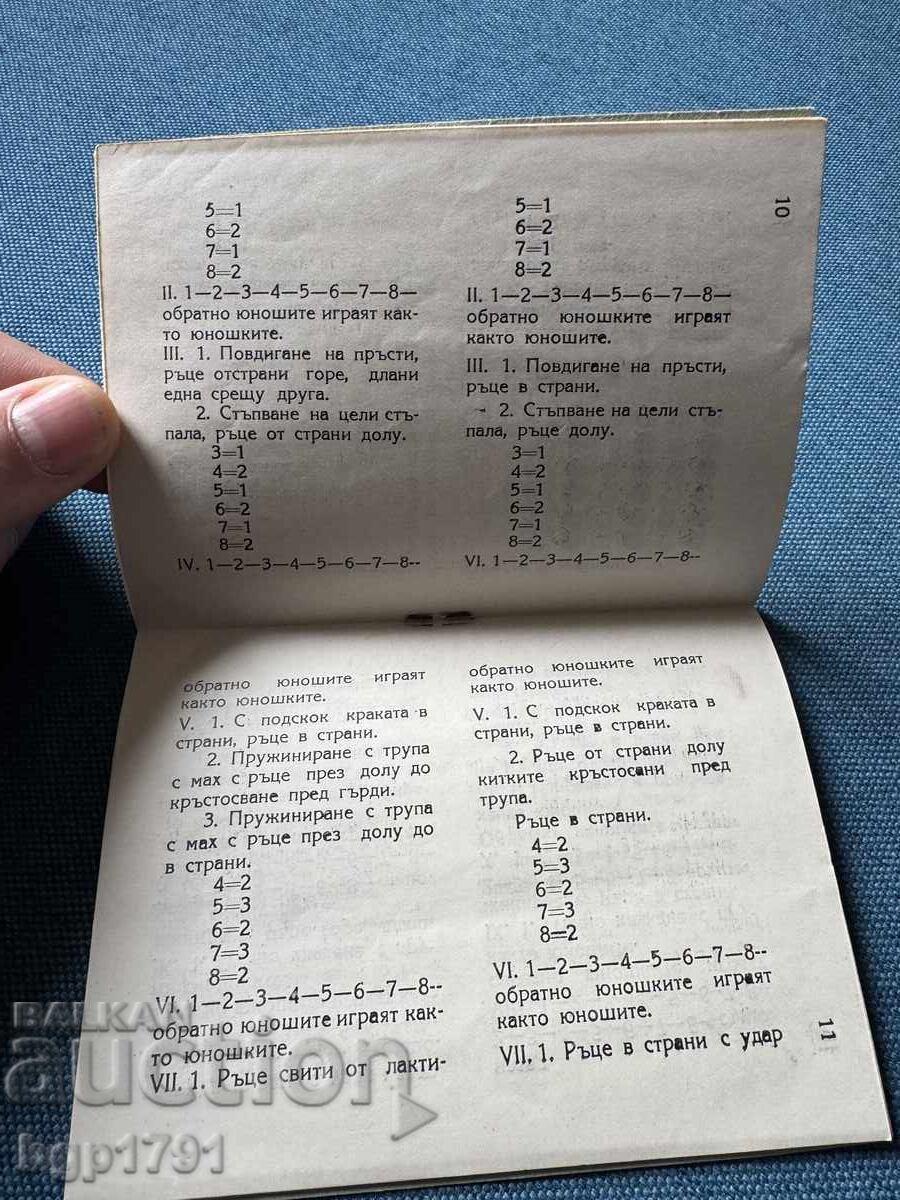 10
5=1
6=2
7=1
8=2
II. 1—2—3—4—5—6—7—8—
обратно юношите играят как-
то юношките.
III. 1. Повдигане на пръсти,
ръце отстрани горе, длани
една срещу друга.
2. Стъпване на цели стъ-
пала, ръце от страни долу.
3=1
4=2
5=1
6=2
7=1
8=2
IV. 1—2—3—4—5—6—7—8--
5=1
6=2
7=1
8=2
II. 1—2—3—4—5—6—7—8—
обратно юношките играят
както юношите.
III. 1. Повдигане на пръсти,
ръце в страни.
- 2. Стъпване на цели стъ-
пала, ръце долу.
3=1
4=2
5=1
6=2
7=1
8=2
VI. 1—2—3—4—5—6—7—8--
обратно юношите играят
както юношките.
V. 1. С подскок краката в
страни, ръце в страни.
2. Пружиниране с трупа
с мах с ръце през долу до
кръстосване пред гърди.
3. Пружиниране с трупа
с мах с ръце през долу до
в страни.
4=2
5=3
6=2
7=3
8=2
VI. 1—2—3—4—5—6—7—8--
обратно юношите играят как-
то юношките.
VII. 1. Ръце свити от лакти-
обратно юношките играят
както юношите.
V. 1. С подскок краката в
страни, ръце в страни.
2. Ръце от страни долу
китките кръстосани пред
трупа.
Ръце в страни.
4=2
5=3
6=2
7=3
8=2
VI. 1—2—3—4—5—6—7—8--
обратно юношките играят
както юношите.
VII. 1. Ръце в страни с удар
11
BALKAN
auction
bgp1791